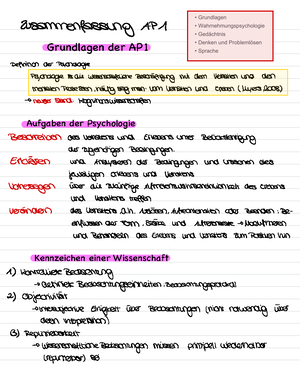 Zusammenfassung AP1
• Grundlagen
• Wahrnehmungspsychologie
• Gedächtnis
• Denken und Problemlösen
• Sprache
Grundlagen der AP1
Definition der Psychologie
Psychologie ist die wissenschaftliche Beschäftigung mit dem Verhalten und den
mentalen Prozessen, häufig sagt man vom Verhalten und Erleben (Myers, 2008)
→ neuer Trend: Kognitionswissenschaften
Aufgaben der Psychologie
Beschreiben des Verhaltens und Erlebens unter Berücksichtigung
der zugehörigen Bedingungen.
Erklären und Analysieren der Bedingungen und Ursachen des
jeweiligen Erlebens und Verhaltens
Vorhersagen über die zukünftige Auftretenswahrscheinlichkeit des Erlebens
und Verhaltens treffen
Verändern des Verhaltens d.h. Auslösen, Aufrechterhalten oder Beenden; Be-
einflussen der Form, Stärke und Auftretensrate →
und Behandeln des Erlebens und Verhaltens zum Positiven hin
Kennzeichen einer Wissenschaft
1) Kontrollierte Beobachtung
→ definierte Beobachtungseinheiten, Beobachtungsprotokoll
2) Objektivität
→ Intersubjektive Einigkeit über Beobachtungen (nicht notwendig über
deren Interpretation)
3) Replizierbarkeit
→ Wissenschaftliche Beobachtungen müssen prinzipiell wiederholbar
(replizierbar) sei